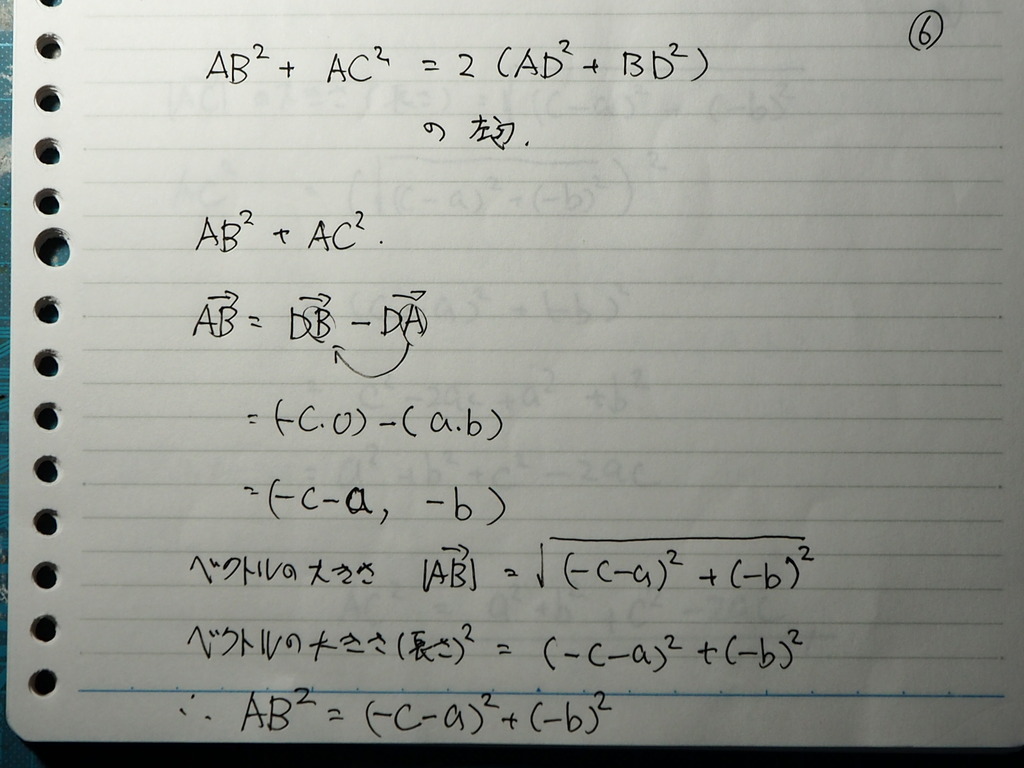 ⑥
AB² + AC² = 2 (AD² + BD²)
の 左辺.
AB² + AC².
→AB = →DB − →DA
= (-c.0) − (a.b)
= (-c-a, -b)
ベクトルの大きさ |→AB| = √(-c-a)² + (-b)²
ベクトルの大きさ(長さ)² = (-c-a)² + (-b)²
∴ AB² = (-c-a)² + (-b)²